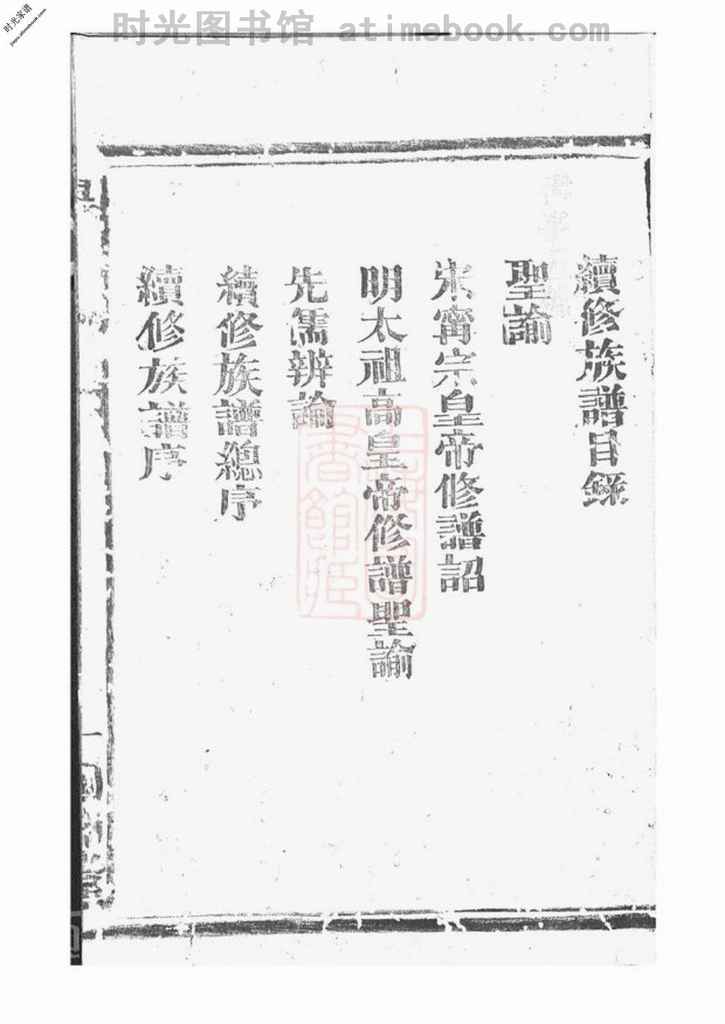 时光图书馆 atimebook.com
时光家谱
續修族譜目錄
聖諭
宋寧宗皇帝修譜詔
明太祖高皇帝修譜聖諭
先儒辨論
續修族譜總序
續修族譜序
一